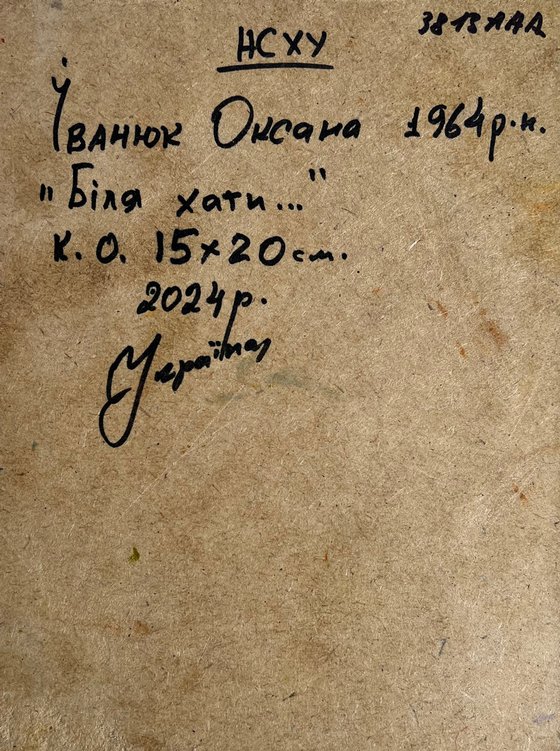 3813AAA
НСХУ
Іванюк Оксана 1964р.н.
"Біля хати..."
К.О. 15х20см.
2024р.
Україна